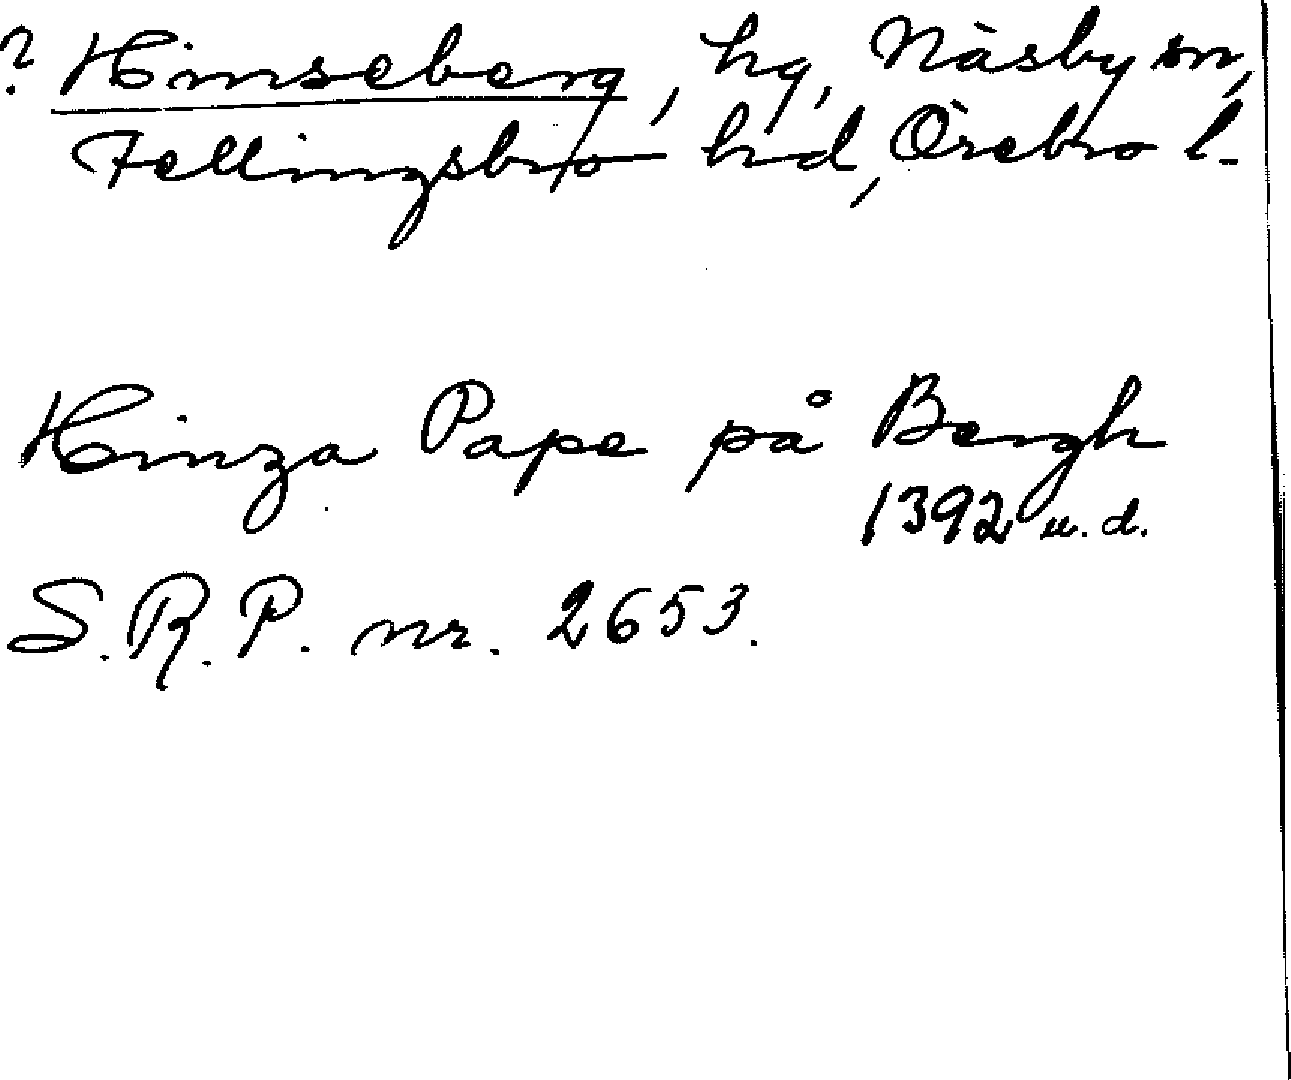 ? Hinseberg, hg, Näsby sn,
Fellingsbro hd, Örebro l.
Hinza Pape på Bergh
1392 u.d.
S.R.P. nr. 2653.